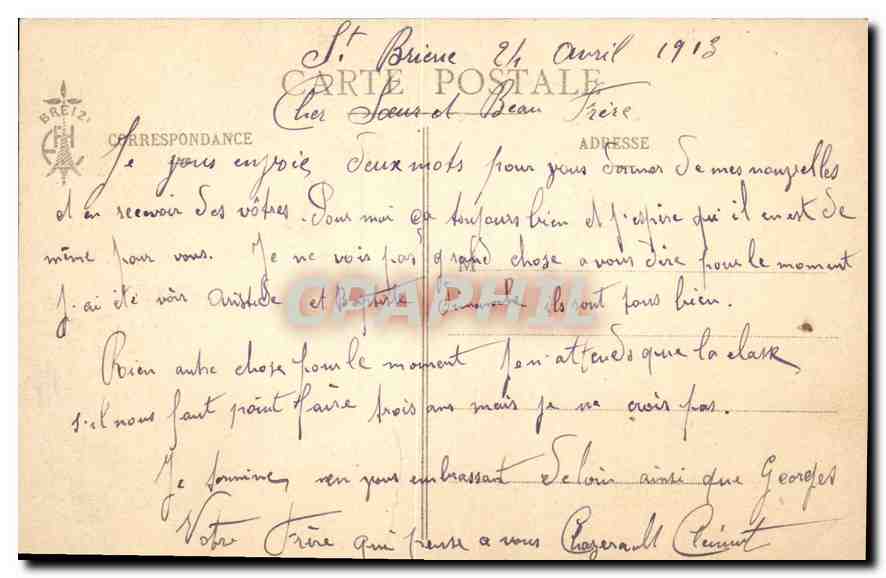 St. Brieuc 24 Avril 1913
CARTE POSTALE
Cher Soeur et Beau Frère
BREIZ
CORRESPONDANCE
ADRESSE
Je vous envoie deux mots pour vous donner de mes nouvelles
et en recevoir des vôtres. Pour moi ça toujours bien et j'espère qu'il en est de
même pour vous. Je ne vois pas grand chose a vous dire pour le moment
M
j'ai été voir Aristide et Baptiste Dimanche ils sont tous bien.
CPAPHIL
Rien autre chose pour le moment j'en attends que la class
s'il nous faut point faire trois ans mais je ne crois pas.
Je termine en vous embrassant de loin ainsi que Georges
Votre Frère qui pense a vous Chazerault Clément